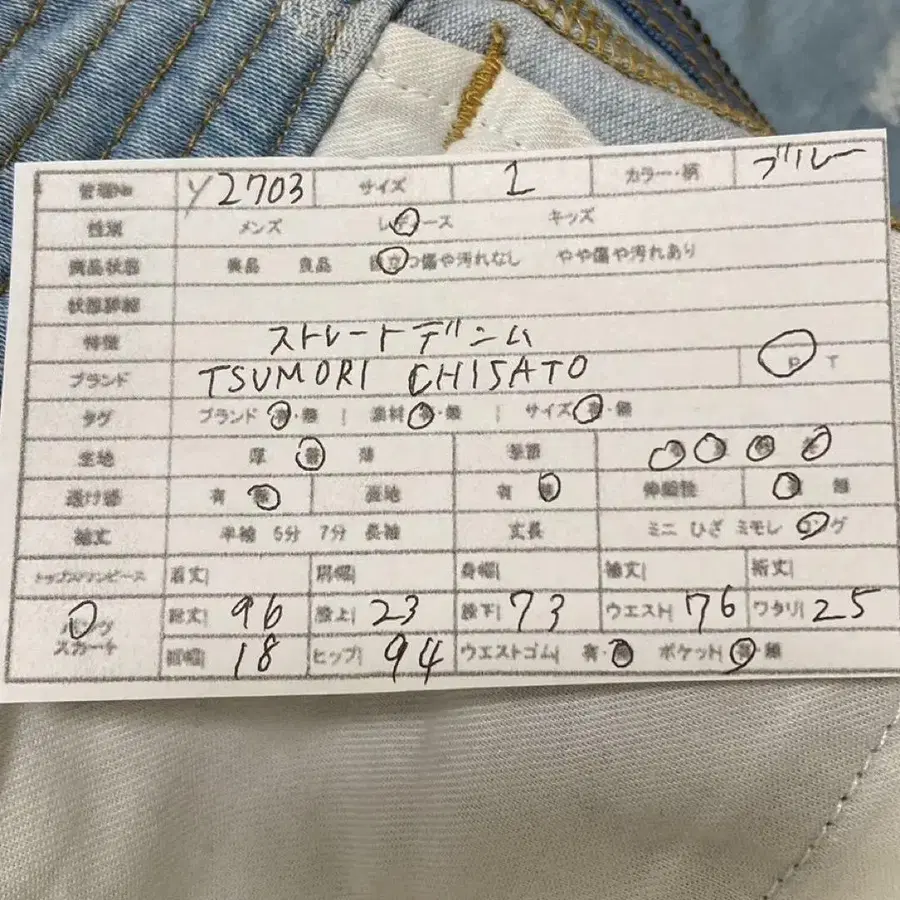 管理No Y2703 サイズ 2 カラー・柄 ブルー
性別 メンズ レディース キッズ
商品状態 美品 良品 目立つ傷や汚れなし やや傷や汚れあり
状態詳細
特徴 ストレートデニム
ブランド TSUMORI CHISATO P T
タグ ブランド 有・無 素材 有・無 サイズ 有・無
生地 厚 普 薄 季節
透け感 有 無 裏地 有 無 伸縮性 有 無
袖丈 半袖 5分 7分 長袖 丈長 ミニ ひざ ミモレ ロング
トップス/ワンピース 着丈 肩幅 身幅 袖丈 裄丈
パンツ 総丈 96 股上 23 股下 73 ウエスト 76 ワタリ 25
スカート 裾幅 18 ヒップ 94 ウエストゴム 有・無 ポケット 有・無